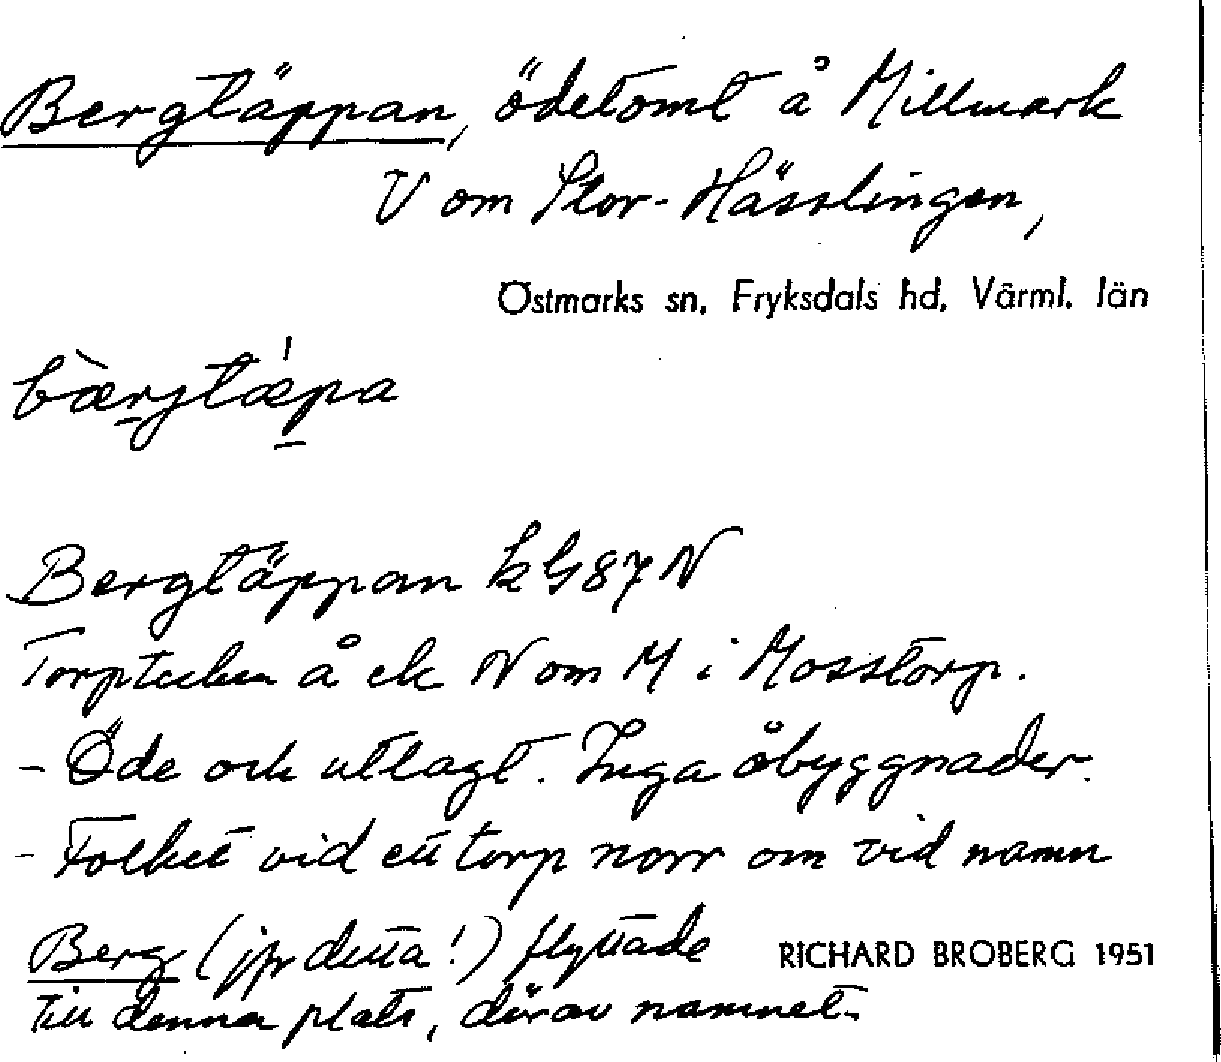 Bergtäppan, ödetomt å Millmark
V om Stor-Hässlingen,
Östmarks sn, Fryksdals hd, Värml. län
bæ̀rjtæ̍pa
Bergtäppan kG87N
Torptecken å ek N om M i Mosstorp.
- Öde och utlagt. Inga åbyggnader.
- Folket vid ett torp norr om vid namn
Berg (jfr detta!) flyttade
till denna plats, därav namnet.
RICHARD BROBERG 1951